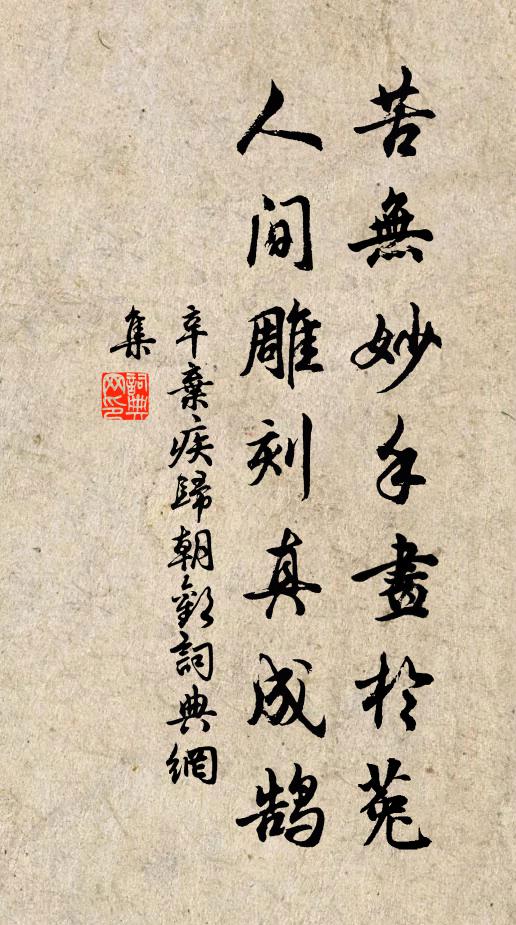 苦無妙手畫於菟
人間雕刻真成鵠
辛棄疾歸朝歡詞典網
集
詞典
网印